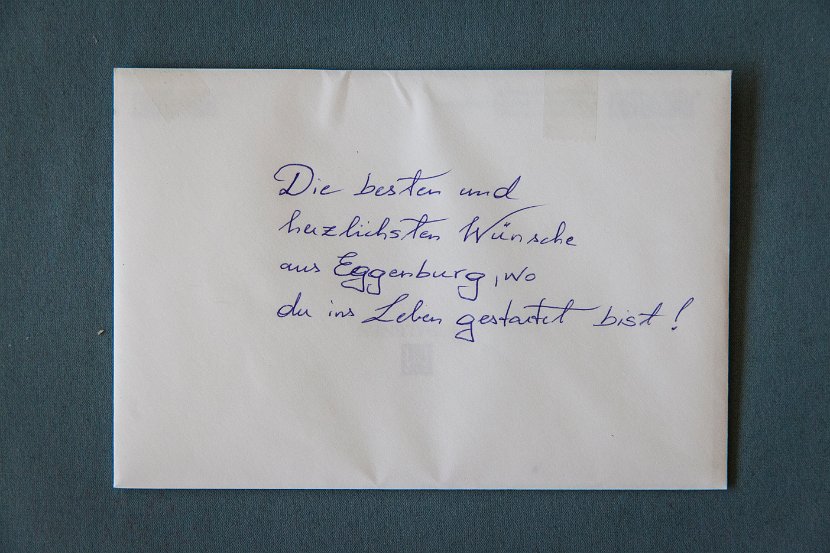 Die besten und
herzlichsten Wünsche
aus Eggenburg, wo
du ins Leben gestartet bist!